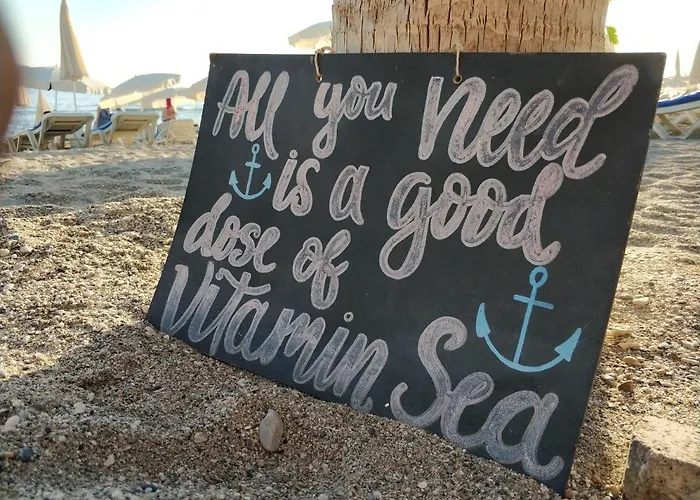 All you Need
is a good
dose of
Vitamin Sea